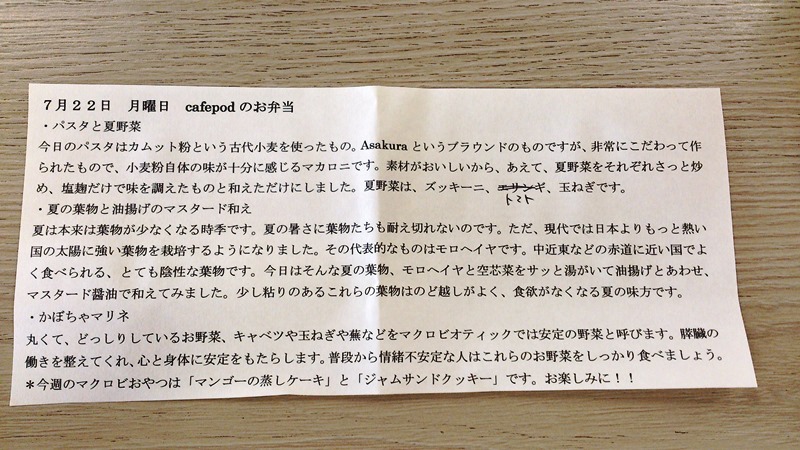 7月22日　月曜日　cafepod のお弁当
・パスタと夏野菜
今日のパスタはカムット粉という古代小麦を使ったもの。Asakura というブラウンドのものですが、非常にこだわって作
られたもので、小麦粉自体の味が十分に感じるマカロニです。素材がおいしいから、あえて、夏野菜をそれぞれさっと炒
め、塩麹だけで味を調えたものと和えただけにしました。夏野菜は、ズッキーニ、エリンギ、玉ねぎです。
トマト
・夏の葉物と油揚げのマスタード和え
夏は本来は葉物が少なくなる時季です。夏の暑さに葉物たちも耐え切れないのです。ただ、現代では日本よりもっと熱い
国の太陽に強い葉物を栽培するようになりました。その代表的なものはモロヘイヤです。中近東などの赤道に近い国でよ
く食べられる、とても陰性な葉物です。今日はそんな夏の葉物、モロヘイヤと空芯菜をサッと湯がいて油揚げとあわせ、
マスタード醤油で和えてみました。少し粘りのあるこれらの葉物はのど越しがよく、食欲がなくなる夏の味方です。
・かぼちゃマリネ
丸くて、どっしりしているお野菜、キャベツや玉ねぎや蕪などをマクロビオティックでは安定の野菜と呼びます。膵臓の
働きを整えてくれ、心と身体に安定をもたらします。普段から情緒不安定な人はこれらのお野菜をしっかり食べましょう。
＊今週のマクロビおやつは「マンゴーの蒸しケーキ」と「ジャムサンドクッキー」です。お楽しみに！！